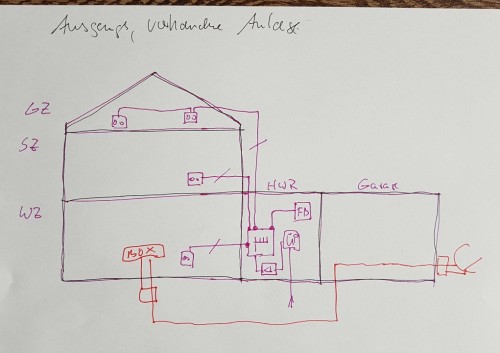 Ausgangs, vorhandene Anlage
GZ
SZ
HWR
Garage
WZ
FB
BOX